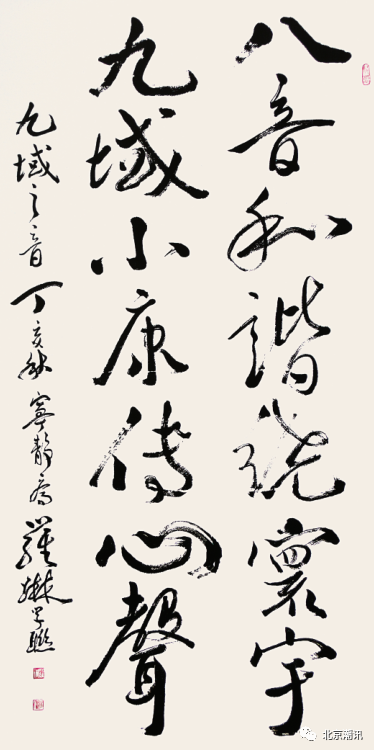 八音和諧繞寰宇
九域小康傳心聲
九域之音 丁亥秋 寧靜齋 羅
北京潮讯